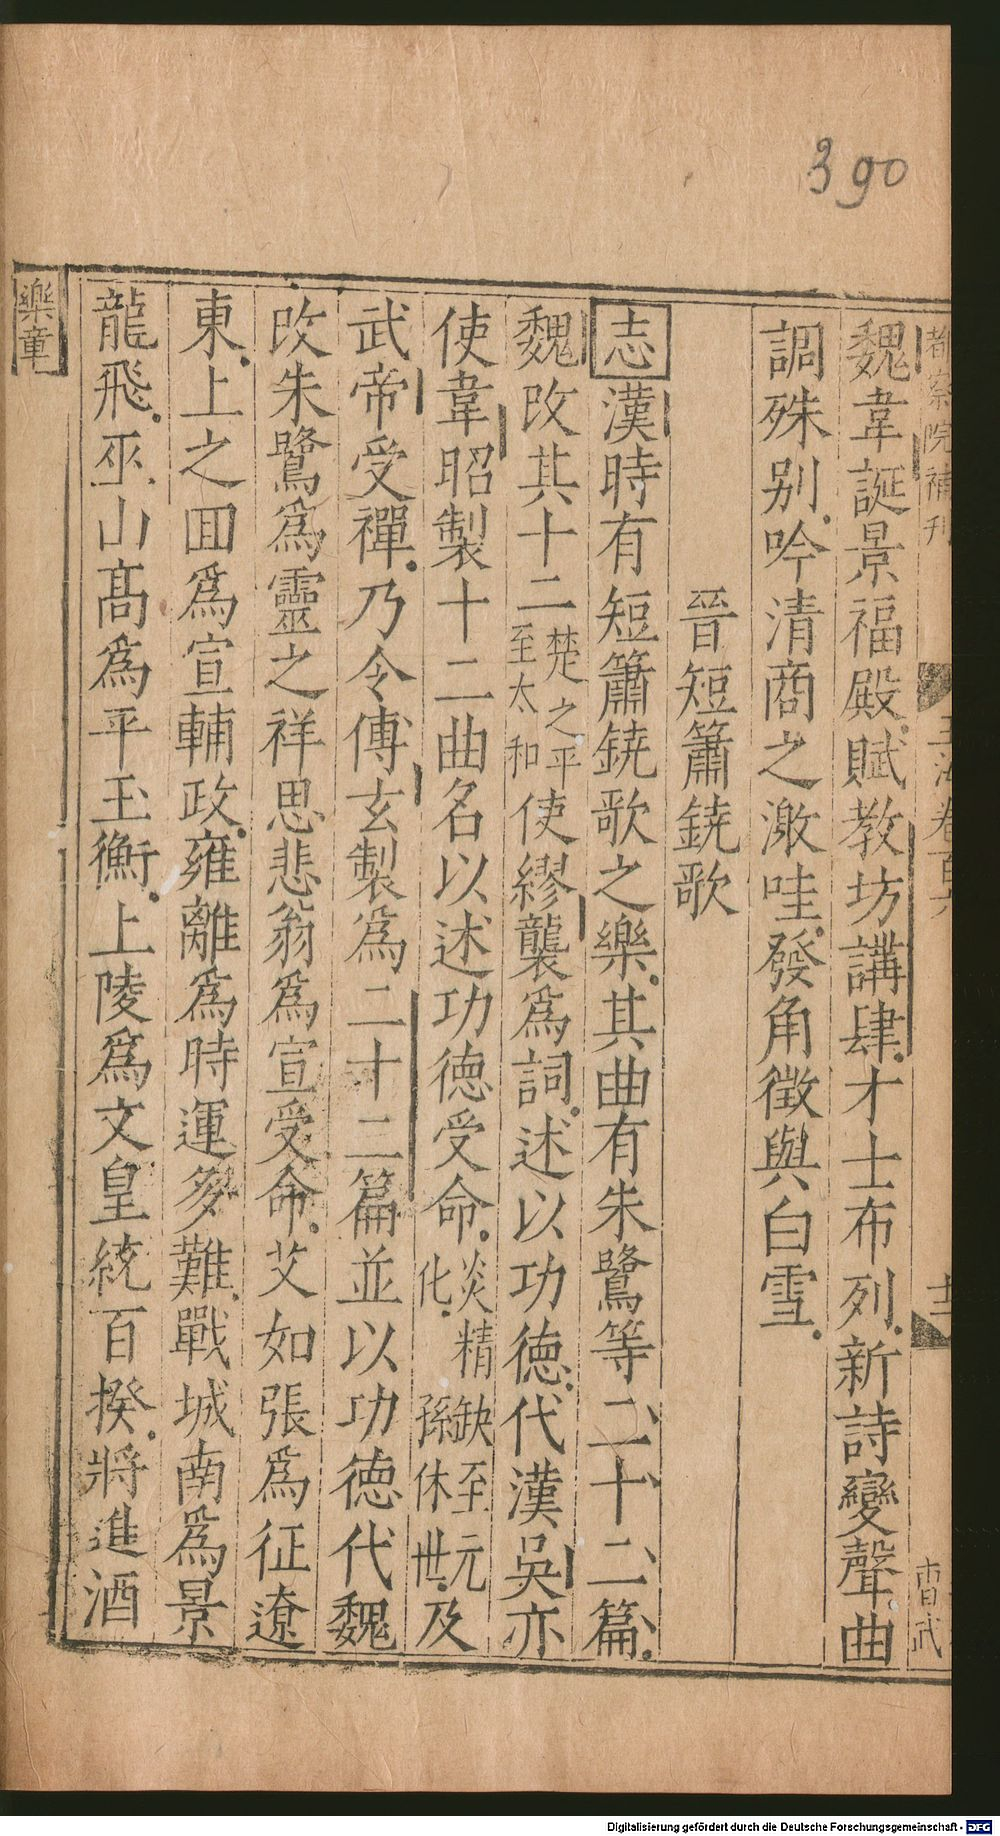 390
都察院補刊
玉海卷百六
十三
魏韋誕景福殿賦教坊講肆才士布列新詩變聲曲
調殊别吟清商之激哇發角徵與白雪
晉短簫鐃歌
志漢時有短簫鐃歌之樂其曲有朱鷺等二十二篇
魏改其十二楚之平至太和使繆襲爲詞述以功德代漢吳亦
使韋昭製十二曲名以述功德受命炎精缺至元化孫休世及
武帝受禪乃令傅玄製爲二十二篇並以功德代魏
改朱鷺爲靈之祥思悲翁爲宣受命艾如張爲征遼
東上之囬爲宣輔政雍離爲時運多難戰城南爲景
龍飛巫山髙爲平玉衡上陵爲文皇統百揆將進酒
樂章
Digitalisierung gefördert durch die Deutsche Forschungsgemeinschaft - DFG